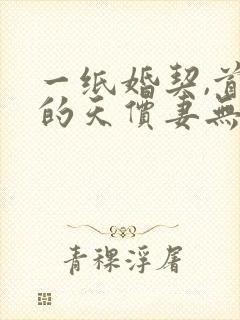 一纸婚契,首
的天價妻無
青稞浮屠